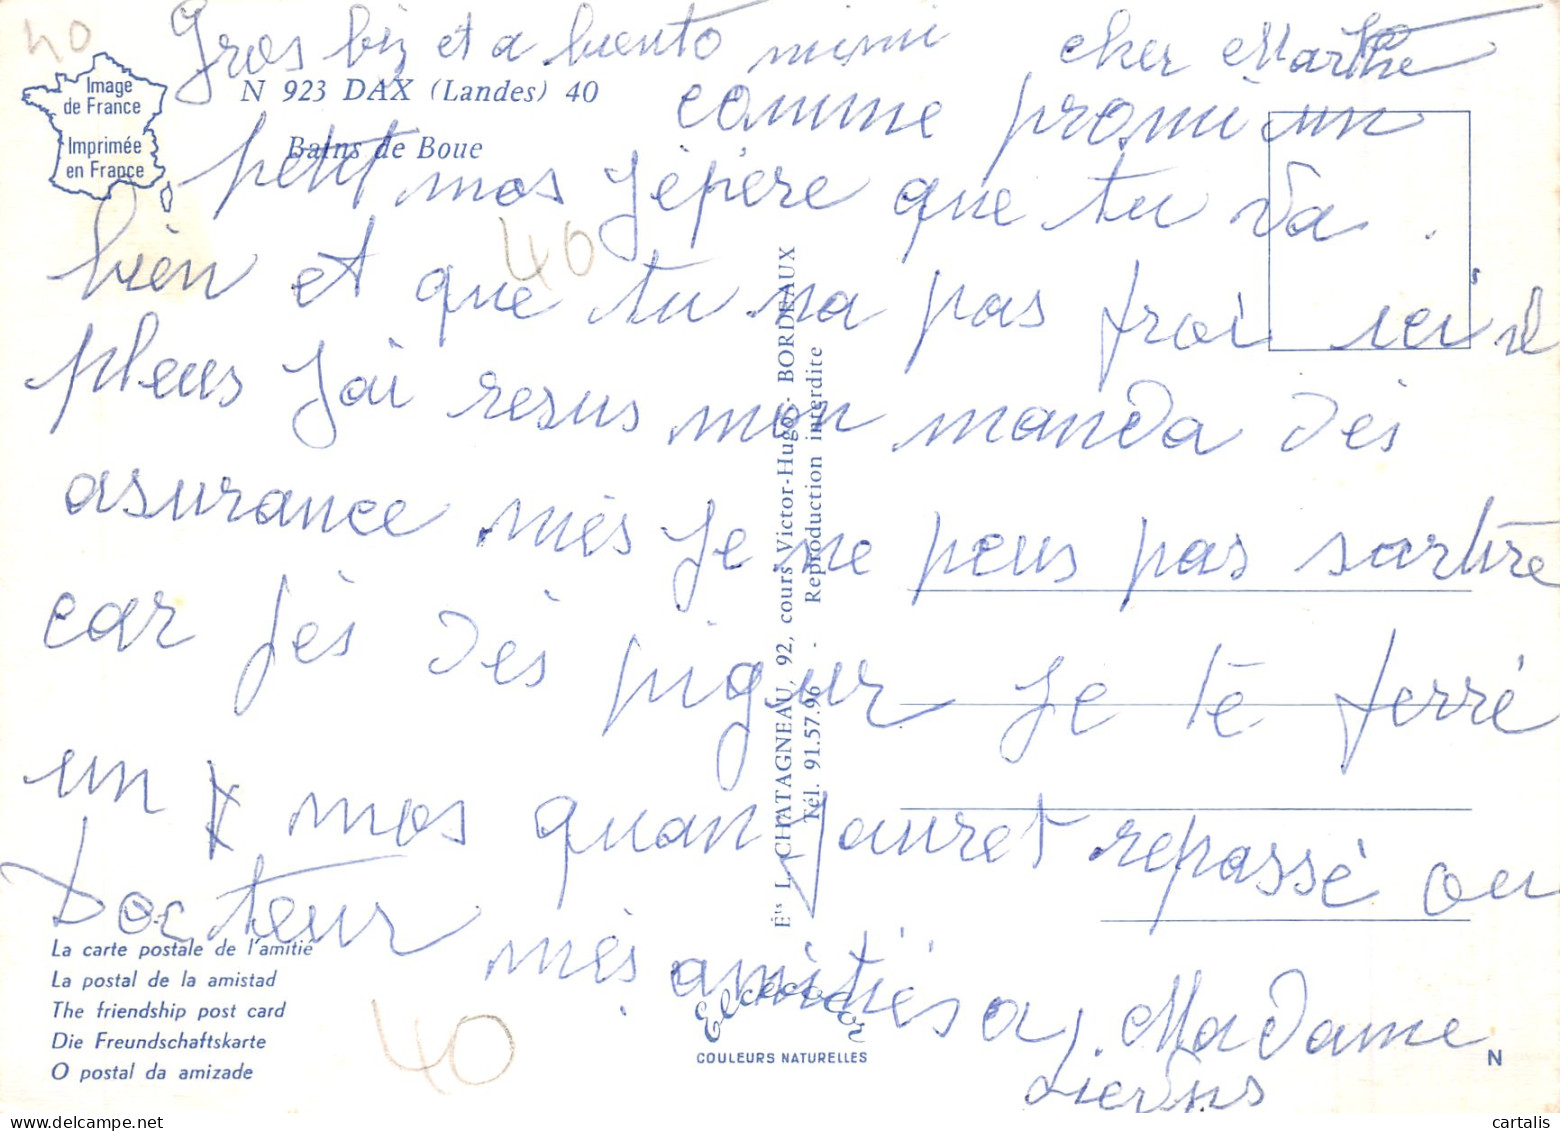 40
Gros biz et a biento mimi
cher Marthe
Image
de France
Imprimée
en France
N 923 DAX (Landes) 40
Bains de Boue
comme promi un
petit mos j'épère que tu va
bien et que tu na pas froi ici il
pleus j'ai resus mon manda dès
asurance mès je ne peus pas sortire
car jès dès piqur je te ferré
un mos quan jauret repassé au
Docteur mès amitiés a Madame
40
40
Éts L. CHATAGNEAU, 92, cours Victor-Hugo - BORDEAUX
Tél. 91.57.96 - Reproduction interdite
La carte postale de l'amitié
La postal de la amistad
The friendship post card
Die Freundschaftskarte
O postal da amizade
Elcécolor
COULEURS NATURELLES
N
cartalis